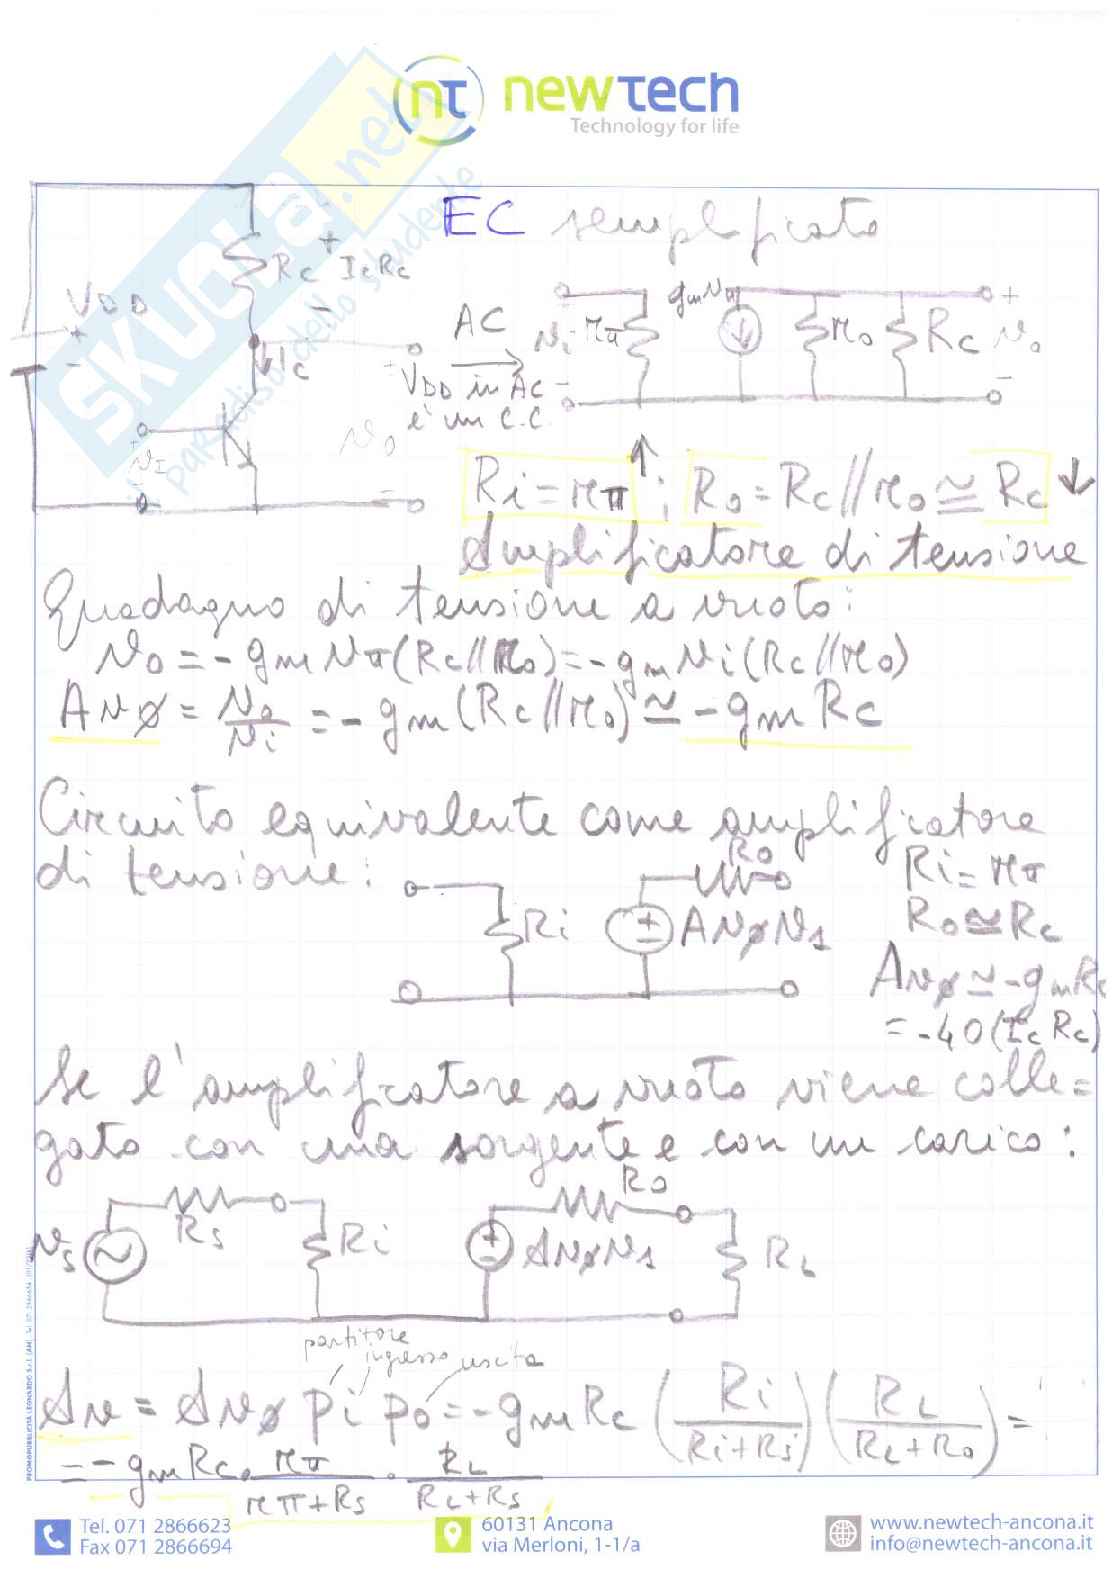 nτ newtech
Technology for life
SKUOLA.net
il paradiso dello studente
EC semplificato
VDD + -
RC + ICRC -
IC
vI + -
vo + -
AC
VDD in AC
è un C.C.
vi + - rπ gmvπ ro RC vo + -
Ri = rπ ↑ ; Ro = RC // ro ≅ RC ↓
Amplificatore di tensione
Guadagno di tensione a vuoto:
vo = - gm vπ (RC // ro) = - gm vi (RC // ro)
Av∅ = vo/vi = - gm (RC // ro) ≅ - gm RC
Circuito equivalente come amplificatore
di tensione:
Ri + - Av∅ vs Ro
Ri = rπ
Ro ≅ RC
Av∅ ≅ - gm RC
= - 40 (IC RC)
Se l'amplificatore a vuoto viene colle=
gato con una sorgente e con un carico:
vs RS Ri + - Av∅ vs Ro RL
partitore
ingresso uscita
Av = Av∅ pi po = - gm RC (Ri/(Ri+Rs)) (RL/(RL+Ro)) =
= - gm RC · rπ/(rπ+RS) · RL/(RL+RS)
PROMOPUBBLICITÀ LEONARDO S.r.l. (AN)
Tel. 071 2866623
Fax 071 2866694
60131 Ancona
via Merloni, 1-1/a
www.newtech-ancona.it
info@newtech-ancona.it